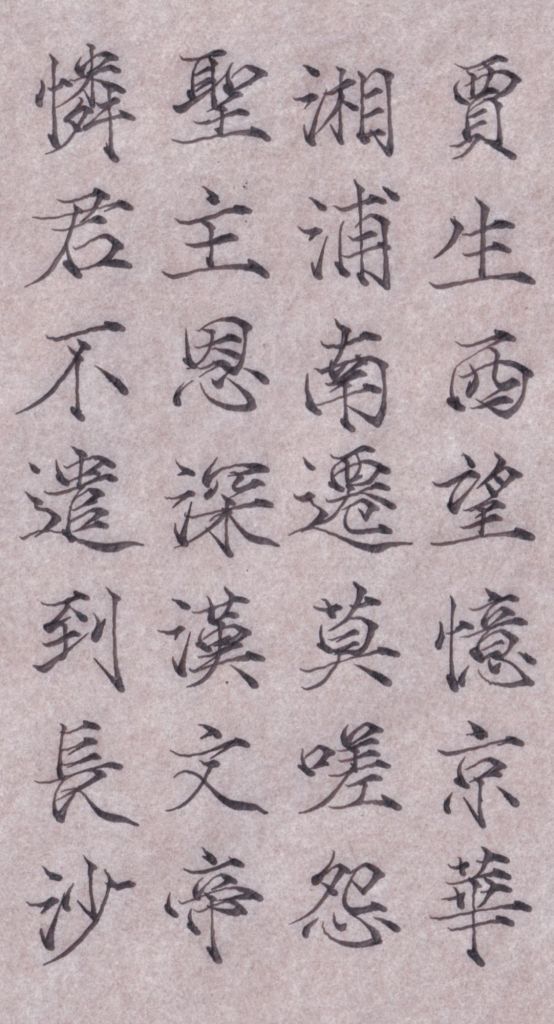 賈生西望憶京華
湘浦南遷莫嗟怨
聖主恩深漢文帝
憐君不遣到長沙